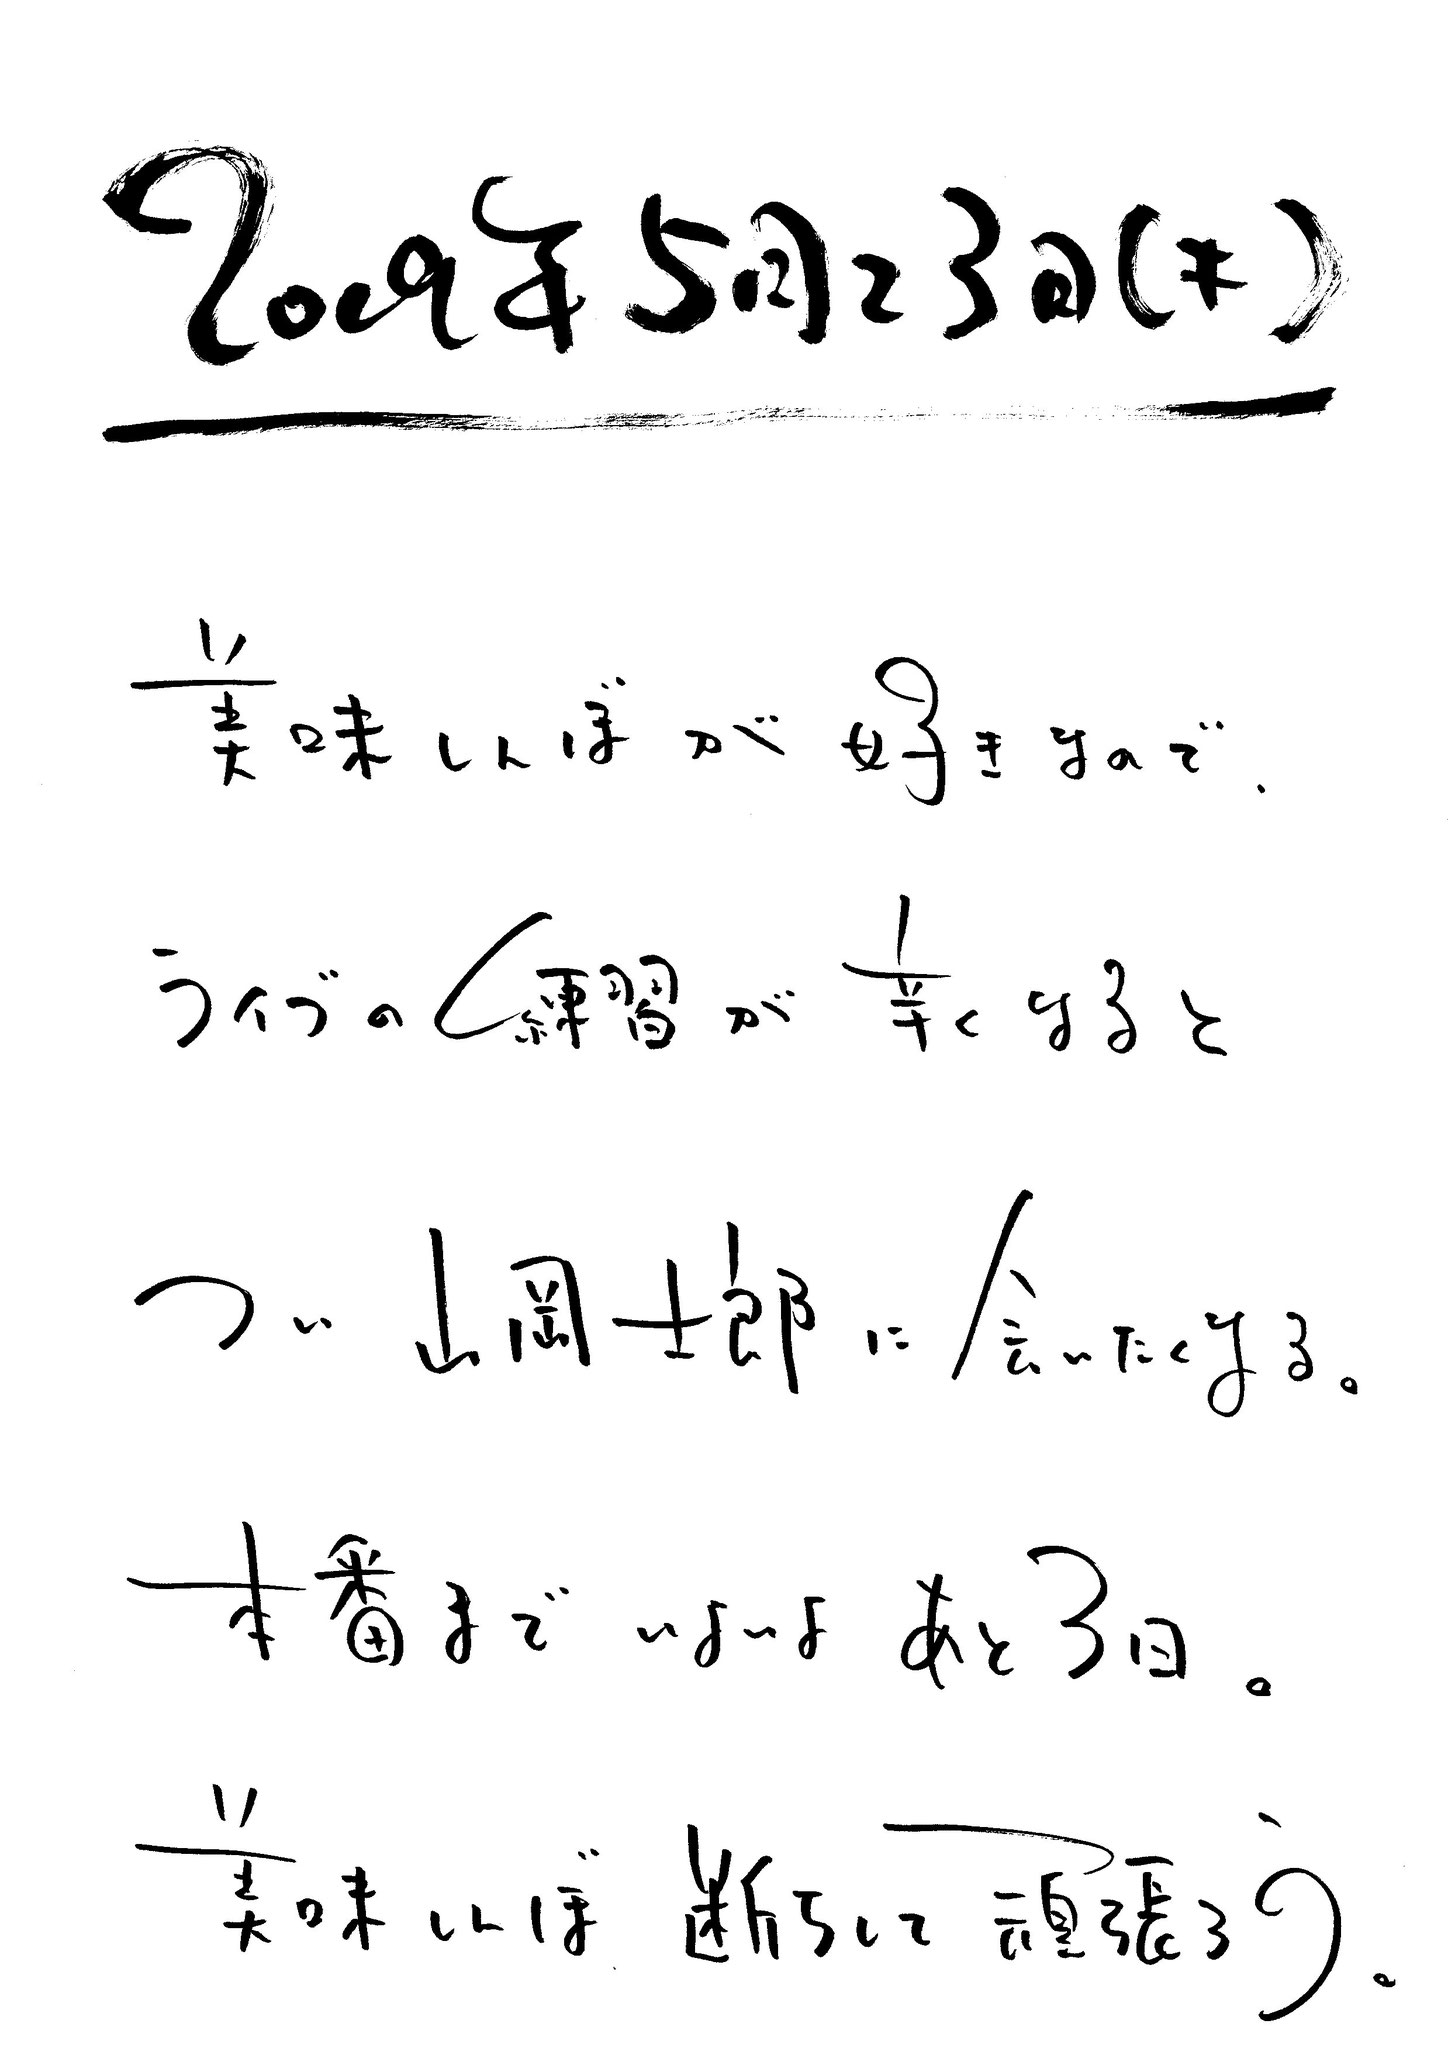 2019年5月23日(木)
美味しんぼが好きなので、
ライブの練習が辛くなると
つい山岡士郎に会いたくなる。
本番までいよいよあと3日。
美味しんぼ断ちして頑張ろう。